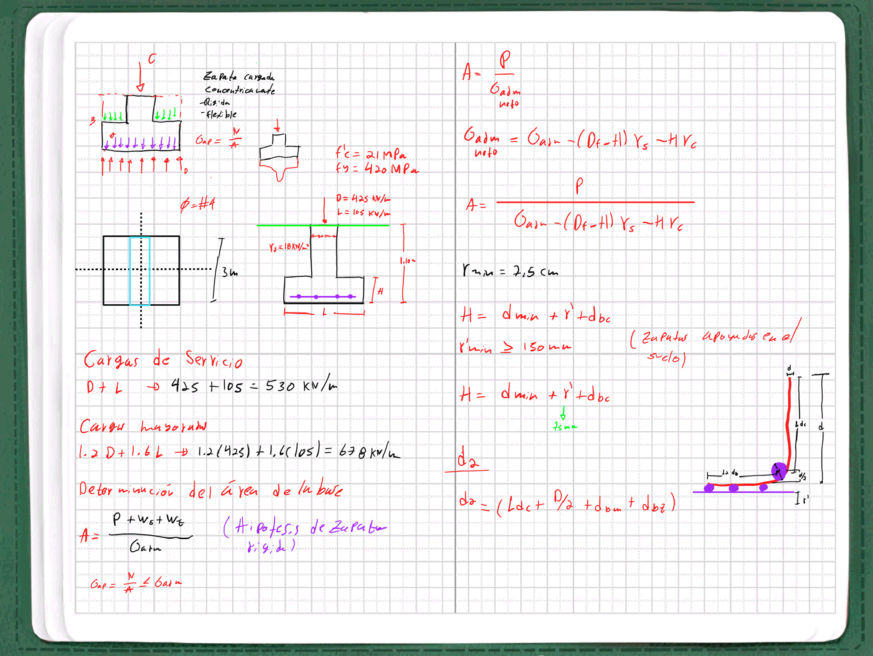 C
Zapata cargada
concentricamente
-Rigida
-flexible
σap = N/A
f'c = 21 MPa
fy = 420 MPa
φ = #4
D = 425 KN/m
L = 105 KN/m
3m
1.10m
H
L
Cargas de Servicio
D + L → 425 + 105 = 530 KN/m
Cargas mayoradas
1.2 D + 1.6 L → 1.2(425) + 1.6(105) = 678 KN/m
Determinación del área de la base
A = P + Ws + Wz / σadm
(Hipotesis de Zapata
rigida)
σap = N/A ≤ σadm
A = P / σadm neto
σadm neto = σadm - (Df - H) γs - H γc
A = P / σadm - (Df - H) γs - H γc
rmin = 7,5 cm
H = dmin + r' + dbc
r'min ≥ 150 mm
(Zapatas apoyadas en el
suelo)
H = dmin + r' + dbc
75mm
d2
d2 = (Ldc + D/2 + dbm + dbz)
d
Ldc
d
r'